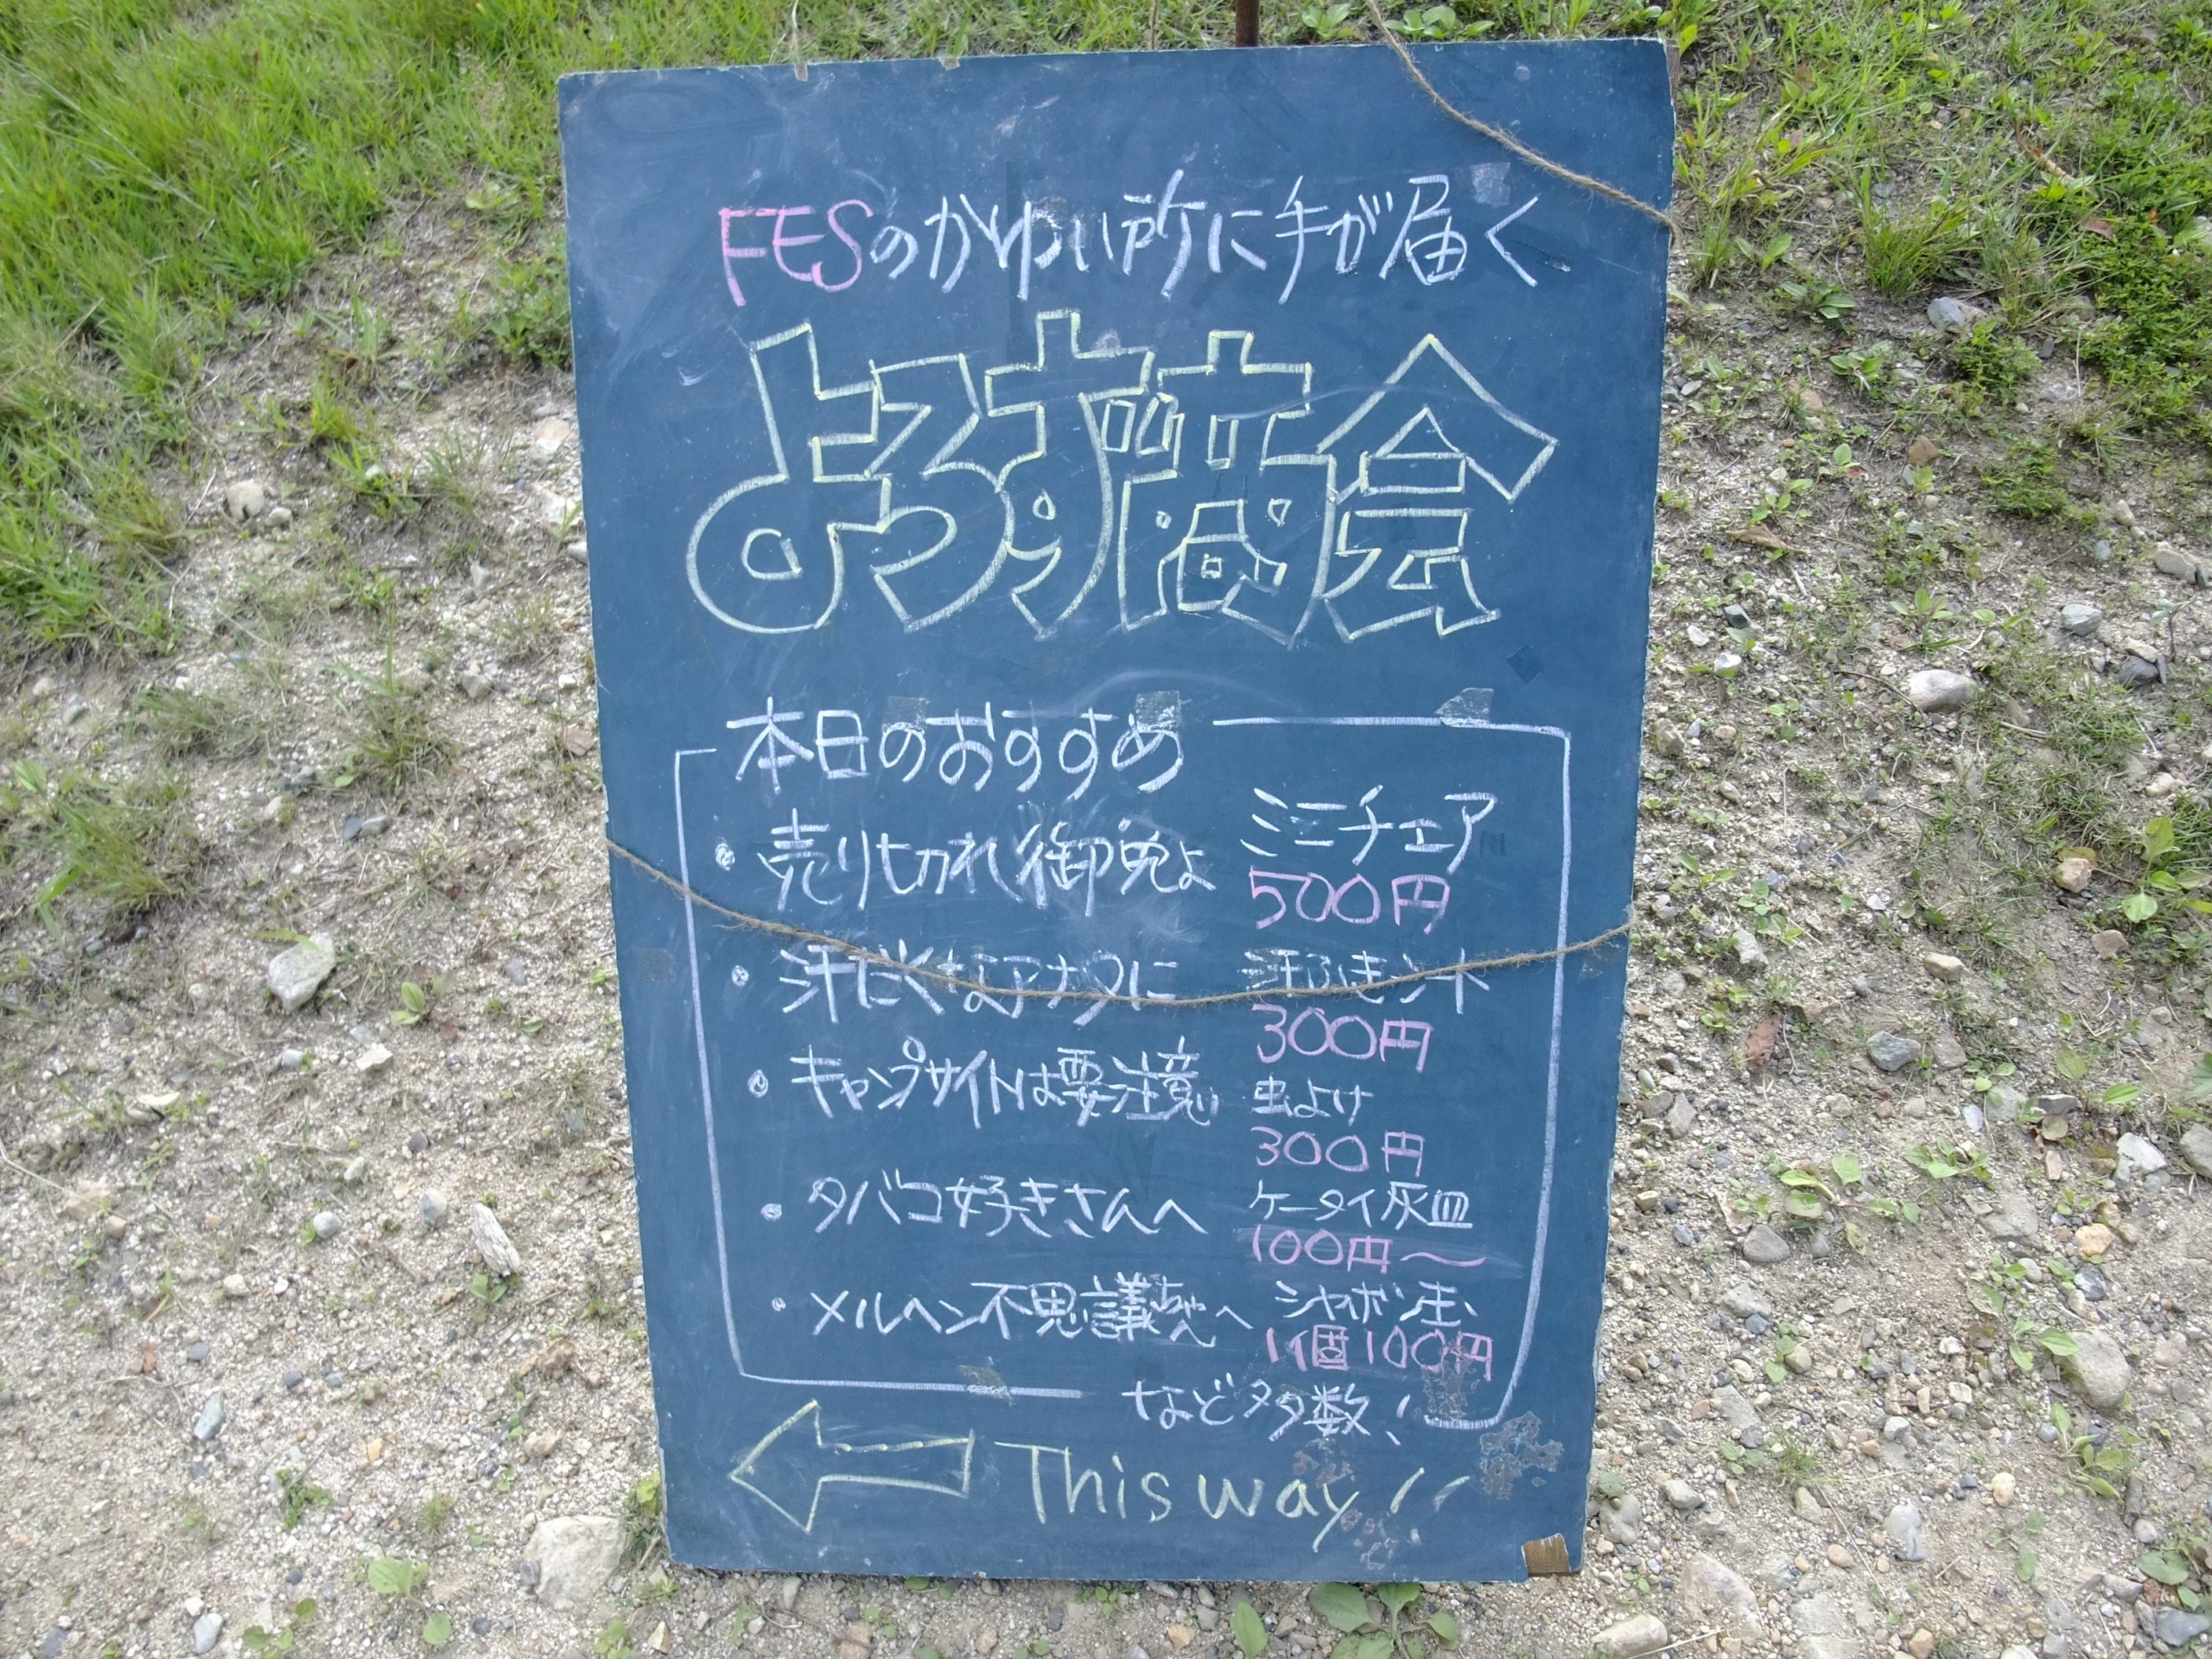 FESのかゆい所に手が届く
よろず商会
本日のおすすめ
・売り切れ御免よ ミニチェア
500円
・汗だくなアナタに 汗ふきシート
300円
・キャンプサイトは要注意 虫よけ
300円
・タバコ好きさんへ ケータイ灰皿
100円〜
・メルヘン不思議ちゃんへ シャボン玉
1個100円
など多数!
This way!!